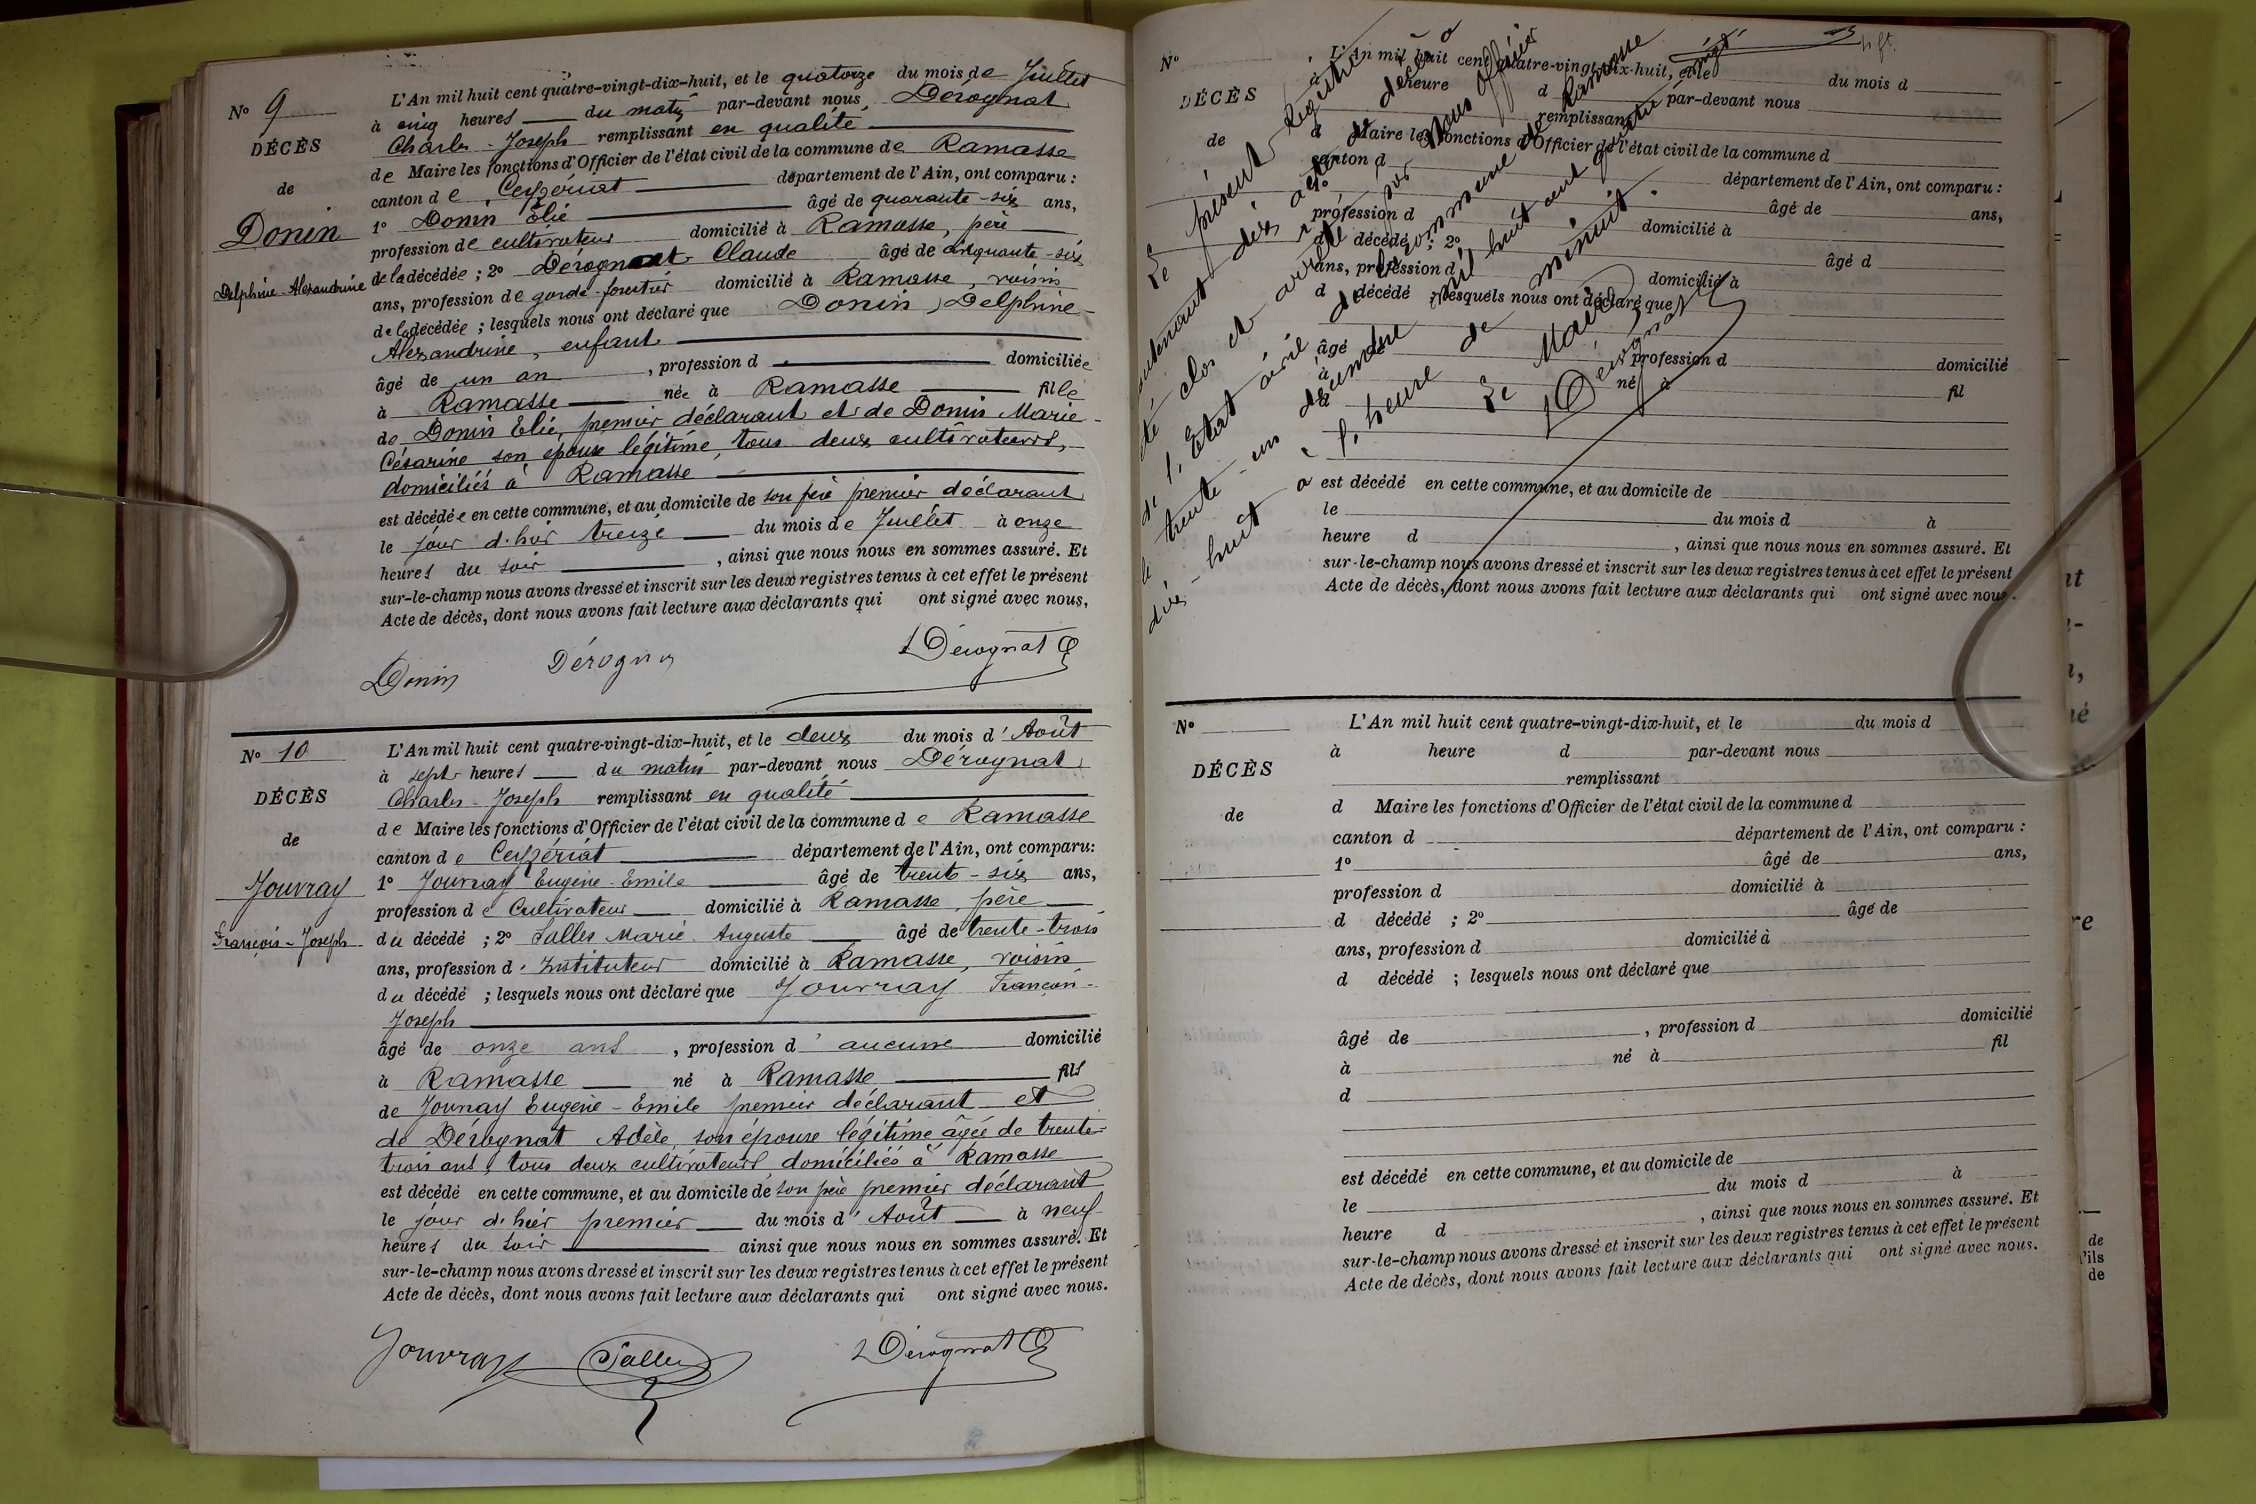 N° 9
DÉCÈS
de
Donin
Delphine-Alexandrine
L'An mil huit cent quatre-vingt-dix-huit, et le quatorze du mois de Juillet
à cinq heures du matin par-devant nous, Dérognat
Charles-Joseph remplissant en qualité
de Maire les fonctions d'Officier de l'état civil de la commune de Ramasse
canton de Ceyzériat département de l'Ain, ont comparu :
1° Donin Élie âgé de quarante-six ans,
profession de cultivateur domicilié à Ramasse, père
de la décédée ; 2° Dérognat Claude âgé de cinquante-six
ans, profession de garde-forestier domicilié à Ramasse, voisin
de la décédée ; lesquels nous ont déclaré que Donin, Delphine-
Alexandrine, enfant
âgé de un an , profession d domiciliée
à Ramasse née à Ramasse fille
de Donin Elie, premier déclarant et de Donin Marie-
Césarine son épouse légitime, tous deux cultivateurs,
domiciliés à Ramasse
est décédée en cette commune, et au domicile de son père premier déclarant
le jour d'hier treize du mois de Juillet à onze
heures du soir , ainsi que nous nous en sommes assuré. Et
sur-le-champ nous avons dressé et inscrit sur les deux registres tenus à cet effet le présent
Acte de décès, dont nous avons fait lecture aux déclarants qui ont signé avec nous,
Donin Dérognat Dérognat
N° 10
DÉCÈS
de
Jouvray
François-Joseph
L'An mil huit cent quatre-vingt-dix-huit, et le deux du mois d'Août
à sept heures du matin par-devant nous Dérognat
Charles-Joseph remplissant en qualité
de Maire les fonctions d'Officier de l'état civil de la commune de Ramasse
canton de Ceyzériat département de l'Ain, ont comparu :
1° Jouvray Eugène-Emile âgé de trente-six ans,
profession de Cultivateur domicilié à Ramasse, père
du décédé ; 2° Salles Marie-Auguste âgé de trente-trois
ans, profession d'Instituteur domicilié à Ramasse, voisin
du décédé ; lesquels nous ont déclaré que Jouvray François-
Joseph
âgé de onze ans , profession d'aucune domicilié
à Ramasse né à Ramasse fils
de Jouvray Eugène-Emile premier déclarant et
de Dérognat Adèle, son épouse légitime âgée de trente-
trois ans, tous deux cultivateurs domiciliés à Ramasse
est décédé en cette commune, et au domicile de son père premier déclarant
le jour d'hier premier du mois d'Août à neuf
heures du soir ainsi que nous nous en sommes assuré. Et
sur-le-champ nous avons dressé et inscrit sur les deux registres tenus à cet effet le présent
Acte de décès, dont nous avons fait lecture aux déclarants qui ont signé avec nous.
Jouvray Salles Dérognat
N°
DÉCÈS
de
L'An mil huit cent quatre-vingt-dix-huit, et le du mois d
à heure d par-devant nous
remplissant
d Maire les fonctions d'Officier de l'état civil de la commune d
canton d département de l'Ain, ont comparu :
1° âgé de ans,
profession d domicilié à
d décédé ; 2° âgé d
ans, profession d domicilié à
d décédé ; lesquels nous ont déclaré que
âgé de profession d domicilié
à né à fil
d
est décédé en cette commune, et au domicile de
le du mois d à
heure d , ainsi que nous nous en sommes assuré. Et
sur-le-champ nous avons dressé et inscrit sur les deux registres tenus à cet effet le présent
Acte de décès, dont nous avons fait lecture aux déclarants qui ont signé avec nous.
Le présent Registre
contenant dix actes de décès a
été clos et arrêté par Nous Officier
de l'État civil de la commune de Ramasse
le trente-un décembre mil huit cent quatre vingt
dix-huit à l'heure de minuit.
Le Maire
Dérognat
N°
DÉCÈS
de
L'An mil huit cent quatre-vingt-dix-huit, et le du mois d
à heure d par-devant nous
remplissant
d Maire les fonctions d'Officier de l'état civil de la commune d
canton d département de l'Ain, ont comparu :
1° âgé de ans,
profession d domicilié à
d décédé ; 2° âgé de
ans, profession d domicilié à
d décédé ; lesquels nous ont déclaré que
âgé de , profession d domicilié
à né à fil
d
est décédé en cette commune, et au domicile de
le du mois d à
heure d , ainsi que nous nous en sommes assuré. Et
sur-le-champ nous avons dressé et inscrit sur les deux registres tenus à cet effet le présent
Acte de décès, dont nous avons fait lecture aux déclarants qui ont signé avec nous.